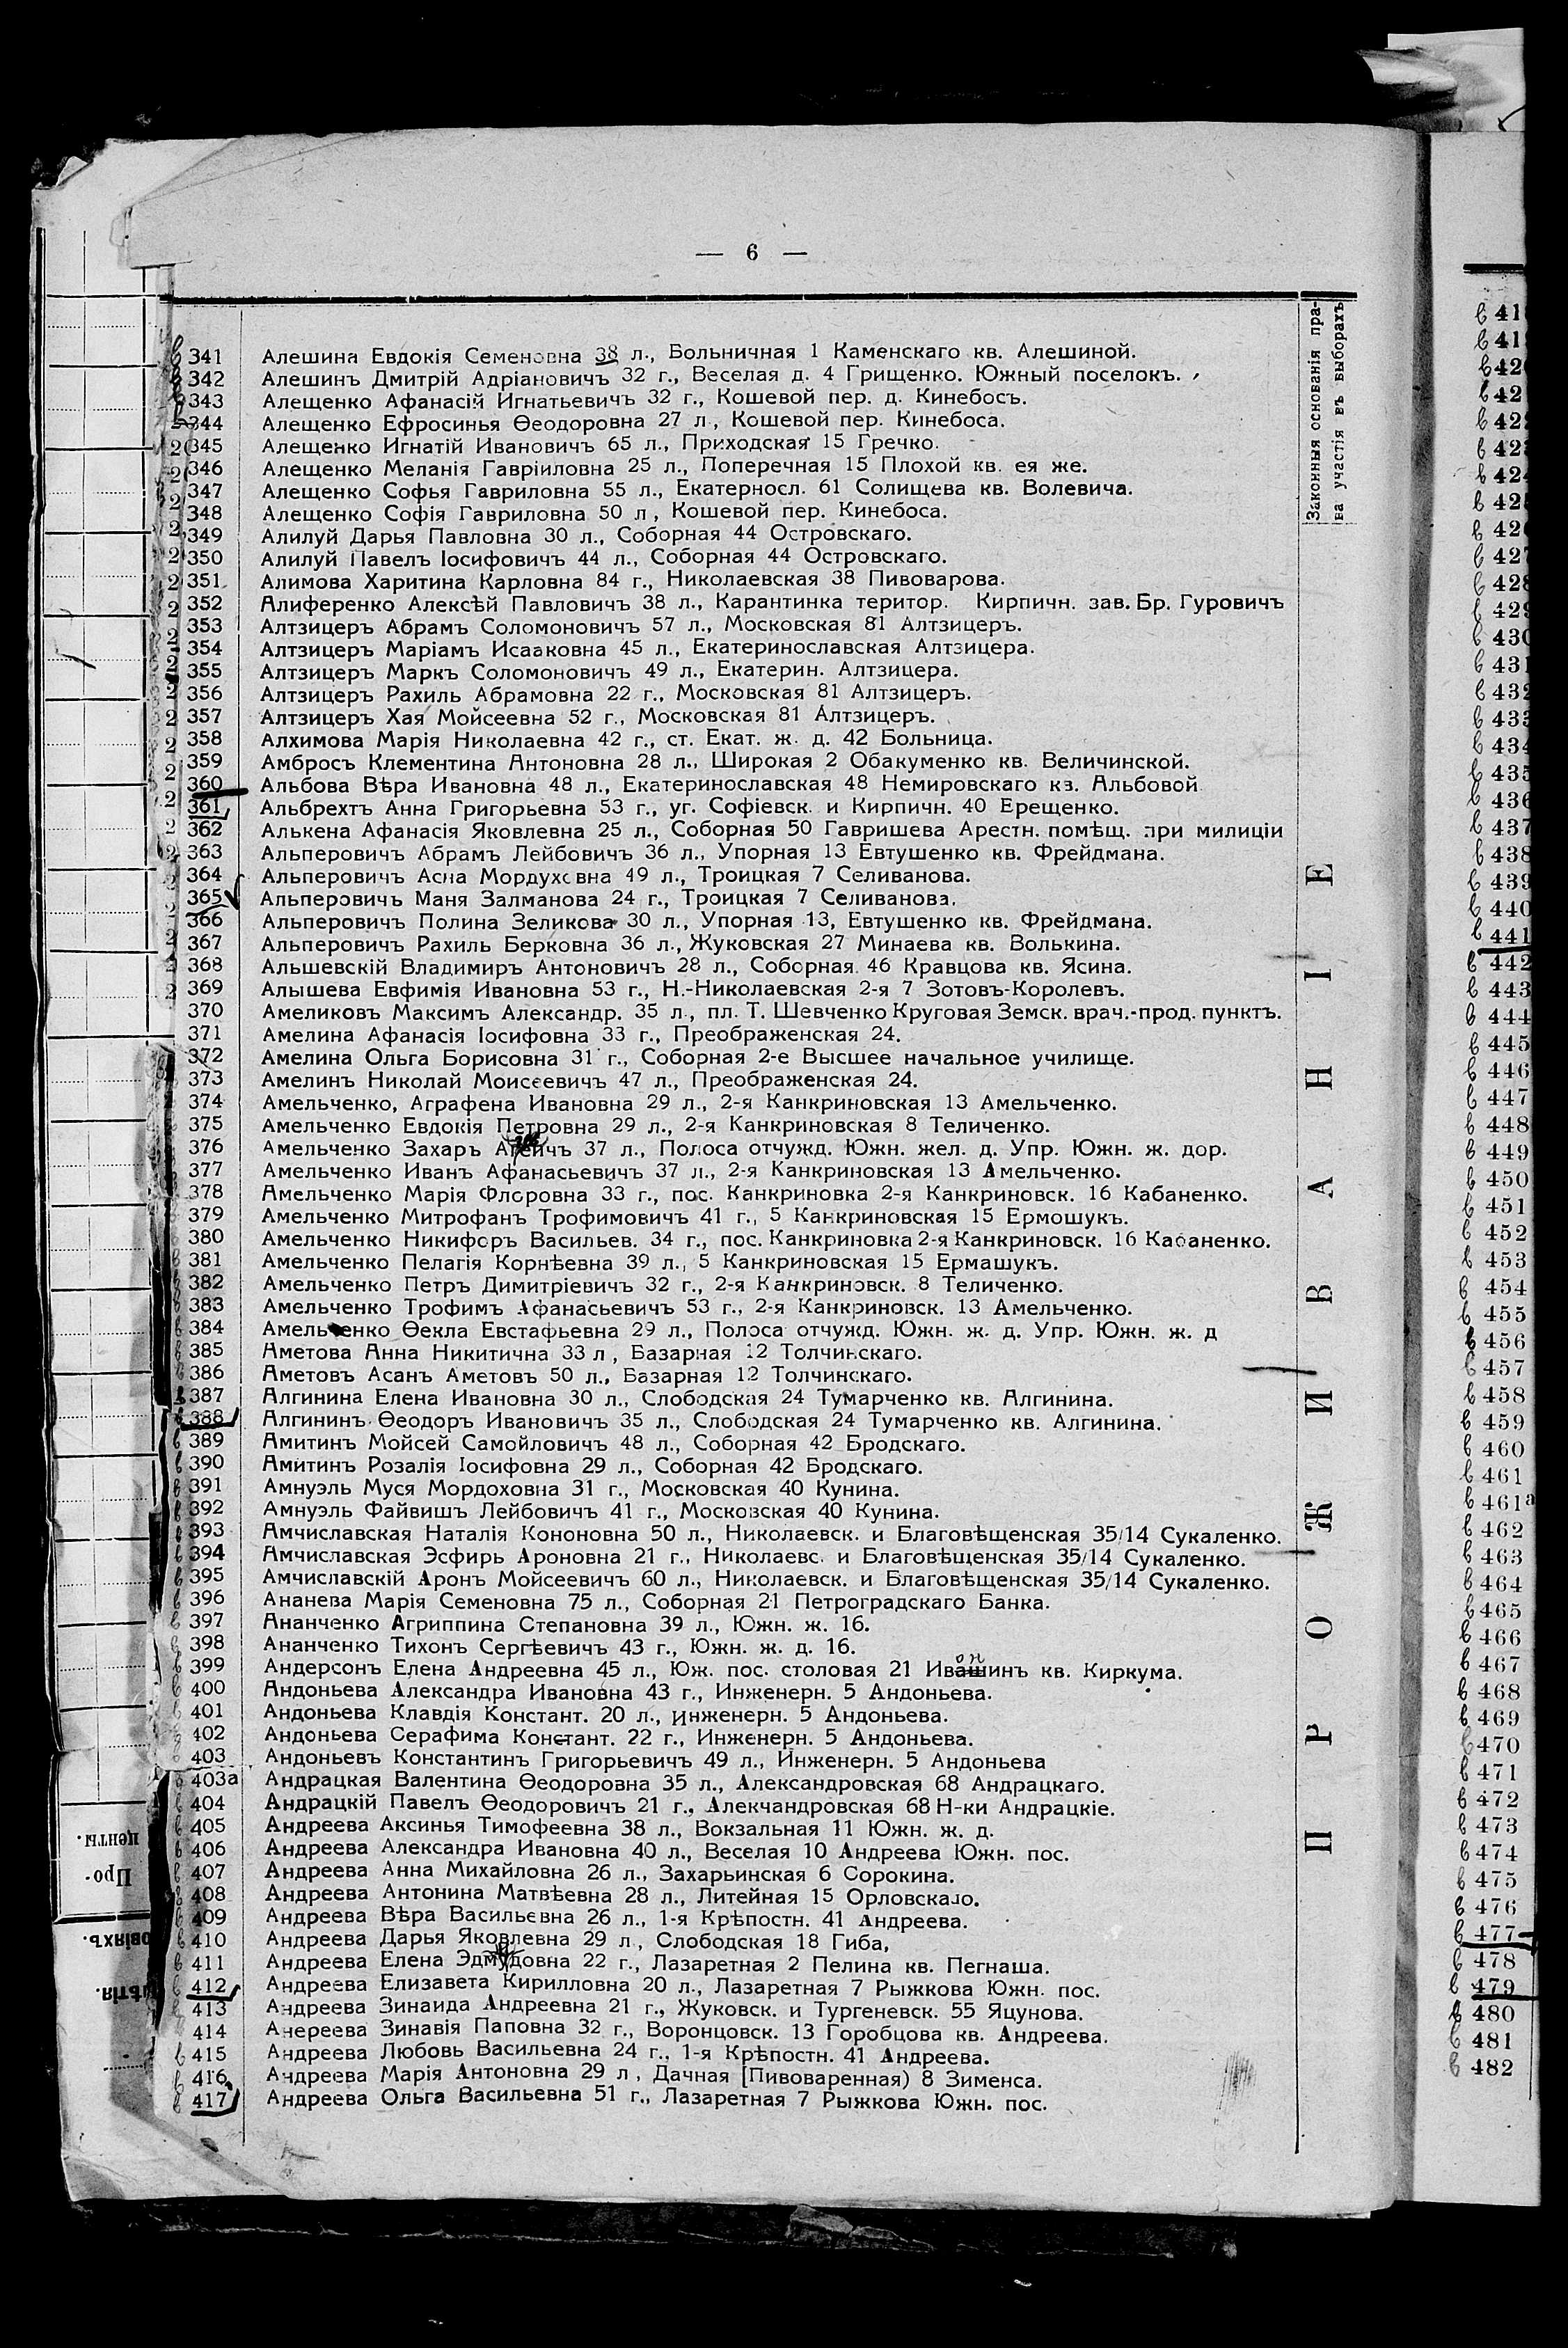 — 6 —
Законныя основанія пра-
ва участія въ выборахъ
341 Алешина Евдокія Семеновна 38 л., Больничная 1 Каменскаго кв. Алешиной.
342 Алешинъ Дмитрій Адріановичъ 32 г., Веселая д. 4 Грищенко. Южный поселокъ.
343 Алещенко Афанасій Игнатьевичъ 32 г., Кошевой пер. д. Кинебосъ.
344 Алещенко Ефросинья Ѳеодоровна 27 л., Кошевой пер. Кинебоса.
345 Алещенко Игнатій Ивановичъ 65 л., Приходская 15 Гречко.
346 Алещенко Меланія Гавріиловна 25 л., Поперечная 15 Плохой кв. ея же.
347 Алещенко Софья Гавриловна 55 л., Екатерносл. 61 Солищева кв. Волевича.
348 Алещенко Софія Гавриловна 50 л., Кошевой пер. Кинебоса.
349 Алилуй Дарья Павловна 30 л., Соборная 44 Островскаго.
350 Алилуй Павелъ Іосифовичъ 44 л., Соборная 44 Островскаго.
351 Алимова Харитина Карловна 84 г., Николаевская 38 Пивоварова.
352 Алиференко Алексѣй Павловичъ 38 л., Карантинка територ. Кирпичн. зав. Бр. Гуровичъ
353 Алтзицеръ Абрамъ Соломоновичъ 57 л., Московская 81 Алтзицеръ.
354 Алтзицеръ Маріамъ Исааковна 45 л., Екатеринославская Алтзицера.
355 Алтзицеръ Маркъ Соломоновичъ 49 л., Екатерин. Алтзицера.
356 Алтзицеръ Рахиль Абрамовна 22 г., Московская 81 Алтзицеръ.
357 Алтзицеръ Хая Мойсеевна 52 г., Московская 81 Алтзицеръ.
358 Алхимова Марія Николаевна 42 г., ст. Екат. ж. д. 42 Больница.
359 Амбросъ Клементина Антоновна 28 л., Широкая 2 Обакуменко кв. Величинской.
360 Альбова Вѣра Ивановна 48 л., Екатеринославская 48 Немировскаго кв. Альбовой
361 Альбрехтъ Анна Григорьевна 53 г., уг. Софіевск. и Кирпичн. 40 Ерещенко.
362 Алькена Афанасія Яковлевна 25 л., Соборная 50 Гавришева Арестн. помѣщ. при милиціи
363 Альперовичъ Абрамъ Лейбовичъ 36 л., Упорная 13 Евтушенко кв. Фрейдмана.
364 Альперовичъ Асна Мордуховна 49 л., Троицкая 7 Селиванова.
365 Альперовичъ Маня Залманова 24 г., Троицкая 7 Селиванова.
366 Альперовичъ Полина Зеликова 30 л., Упорная 13, Евтушенко кв. Фрейдмана.
367 Альперовичъ Рахиль Берковна 36 л., Жуковская 27 Минаева кв. Волькина.
368 Альшевскій Владимиръ Антоновичъ 28 л., Соборная 46 Кравцова кв. Ясина.
369 Алышева Евфимія Ивановна 53 г., Н.-Николаевская 2-я 7 Зотовъ-Королевъ.
370 Амеликовъ Максимъ Александр. 35 л., пл. Т. Шевченко Круговая Земск. врач.-прод. пунктъ.
371 Амелина Афанасія Іосифовна 33 г., Преображенская 24.
372 Амелина Ольга Борисовна 31 г., Соборная 2-е Высшее начальное училище.
373 Амелинъ Николай Моисеевичъ 47 л., Преображенская 24.
374 Амельченко, Аграфена Ивановна 29 л., 2-я Канкриновская 13 Амельченко.
375 Амельченко Евдокія Петровна 29 л., 2-я Канкриновская 8 Теличенко.
376 Амельченко Захаръ 37 л., Полоса отчужд. Южн. жел. д. Упр. Южн. ж. дор.
377 Амельченко Иванъ Афанасьевичъ 37 л., 2-я Канкриновская 13 Амельченко.
378 Амельченко Марія Флоровна 33 г., пос. Канкриновка 2-я Канкриновск. 16 Кабаненко.
379 Амельченко Митрофанъ Трофимовичъ 41 г., 5 Канкриновская 15 Ермошукъ.
380 Амельченко Никифоръ Васильев. 34 г., пос. Канкриновка 2-я Канкриновск. 16 Кабаненко.
381 Амельченко Пелагія Корнѣевна 39 л., 5 Канкриновская 15 Ермашукъ.
382 Амельченко Петръ Димитріевичъ 32 г., 2-я Канкриновск. 8 Теличенко.
383 Амельченко Трофимъ Афанасьевичъ 53 г., 2-я Канкриновск. 13 Амельченко.
384 Амельченко Ѳекла Евстафьевна 29 л., Полоса отчужд. Южн. ж. д. Упр. Южн. ж. д
385 Аметова Анна Никитична 33 л., Базарная 12 Толчинскаго.
386 Аметовъ Асанъ Аметовъ 50 л., Базарная 12 Толчинскаго.
387 Алгинина Елена Ивановна 30 л., Слободская 24 Тумарченко кв. Алгинина.
388 Алгининъ Ѳеодоръ Ивановичъ 35 л., Слободская 24 Тумарченко кв. Алгинина.
389 Амитинъ Мойсей Самойловичъ 48 л., Соборная 42 Бродскаго.
390 Амитинъ Розалія Іосифовна 29 л., Соборная 42 Бродскаго.
391 Амнуэль Муся Мордоховна 31 г., Московская 40 Кунина.
392 Амнуэль Файвишъ Лейбовичъ 41 г., Московская 40 Кунина.
393 Амчиславская Наталія Кононовна 50 л., Николаевск. и Благовѣщенская 35/14 Сукаленко.
394 Амчиславская Эсфирь Ароновна 21 г., Николаевс. и Благовѣщенская 35/14 Сукаленко.
395 Амчиславскій Аронъ Мойсеевичъ 60 л., Николаевск. и Благовѣщенская 35/14 Сукаленко.
396 Ананева Марія Семеновна 75 л., Соборная 21 Петроградскаго Банка.
397 Ананченко Агриппина Степановна 39 л., Южн. ж. 16.
398 Ананченко Тихонъ Сергѣевичъ 43 г., Южн. ж. д. 16.
399 Андерсонъ Елена Андреевна 45 л., Юж. пос. столовая 21 Ивашинъ кв. Киркума.
400 Андоньева Александра Ивановна 43 г., Инженерн. 5 Андоньева.
401 Андоньева Клавдія Констант. 20 л., инженерн. 5 Андоньева.
402 Андоньева Серафима Констант. 22 г., Инженерн. 5 Андоньева.
403 Андоньевъ Константинъ Григорьевичъ 49 л., Инженерн. 5 Андоньева
403а Андрацкая Валентина Ѳеодоровна 35 л., Александровская 68 Андрацкаго.
404 Андрацкій Павелъ Ѳеодоровичъ 21 г., Алекчандровская 68 Н-ки Андрацкіе.
405 Андреева Аксинья Тимофеевна 38 л., Вокзальная 11 Южн. ж. д.
406 Андреева Александра Ивановна 40 л., Веселая 10 Андреева Южн. пос.
407 Андреева Анна Михайловна 26 л., Захарьинская 6 Сорокина.
408 Андреева Антонина Матвѣевна 28 л., Литейная 15 Орловскаго.
409 Андреева Вѣра Васильевна 26 л., 1-я Крѣпостн. 41 Андреева.
410 Андреева Дарья Яковлевна 29 л., Слободская 18 Гиба,
411 Андреева Елена Эдмудовна 22 г., Лазаретная 2 Пелина кв. Пегнаша.
412 Андреева Елизавета Кирилловна 20 л., Лазаретная 7 Рыжкова Южн. пос.
413 Андреева Зинаида Андреевна 21 г., Жуковск. и Тургеневск. 55 Яцунова.
414 Анереева Зинавія Паповна 32 г., Воронцовск. 13 Горобцова кв. Андреева.
415 Андреева Любовь Васильевна 24 г., 1-я Крѣпостн. 41 Андреева.
416 Андреева Марія Антоновна 29 л., Дачная [Пивоваренная) 8 Зименса.
417 Андреева Ольга Васильевна 51 г., Лазаретная 7 Рыжкова Южн. пос.
ПРОЖИВАНІЕ
Про-
центы.
427
428
430
431
437
438
439
440
441
442
443
444
445
446
447
448
449
450
451
452
453
454
455
456
457
458
459
460
461
461а
462
463
464
465
466
467
468
469
470
471
472
473
474
475
476
477
478
479
480
481
482